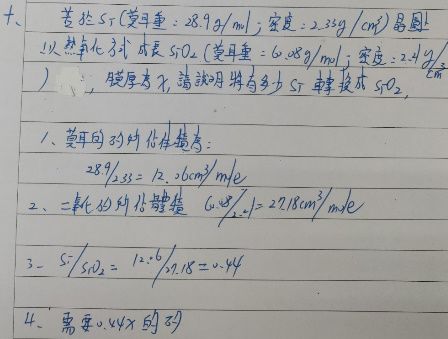 十、若於Si(莫耳重:28.9g/mol;密度:2.33g/cm³)晶圓上
以熱氧化方式成長SiO₂(莫耳重:60.08g/mol;密度:2.21g/cm³
),膜厚為x,請說明將有多少Si轉換成SiO₂,
1、莫耳的矽所佔体積為:
28.9/2.33=12.06cm³/mole
2、二氧化矽所佔體積 60.08/2.21=27.18cm³/mole
3- Si/SiO₂= 12.06/27.18=0.44
4、需要0.44x的矽